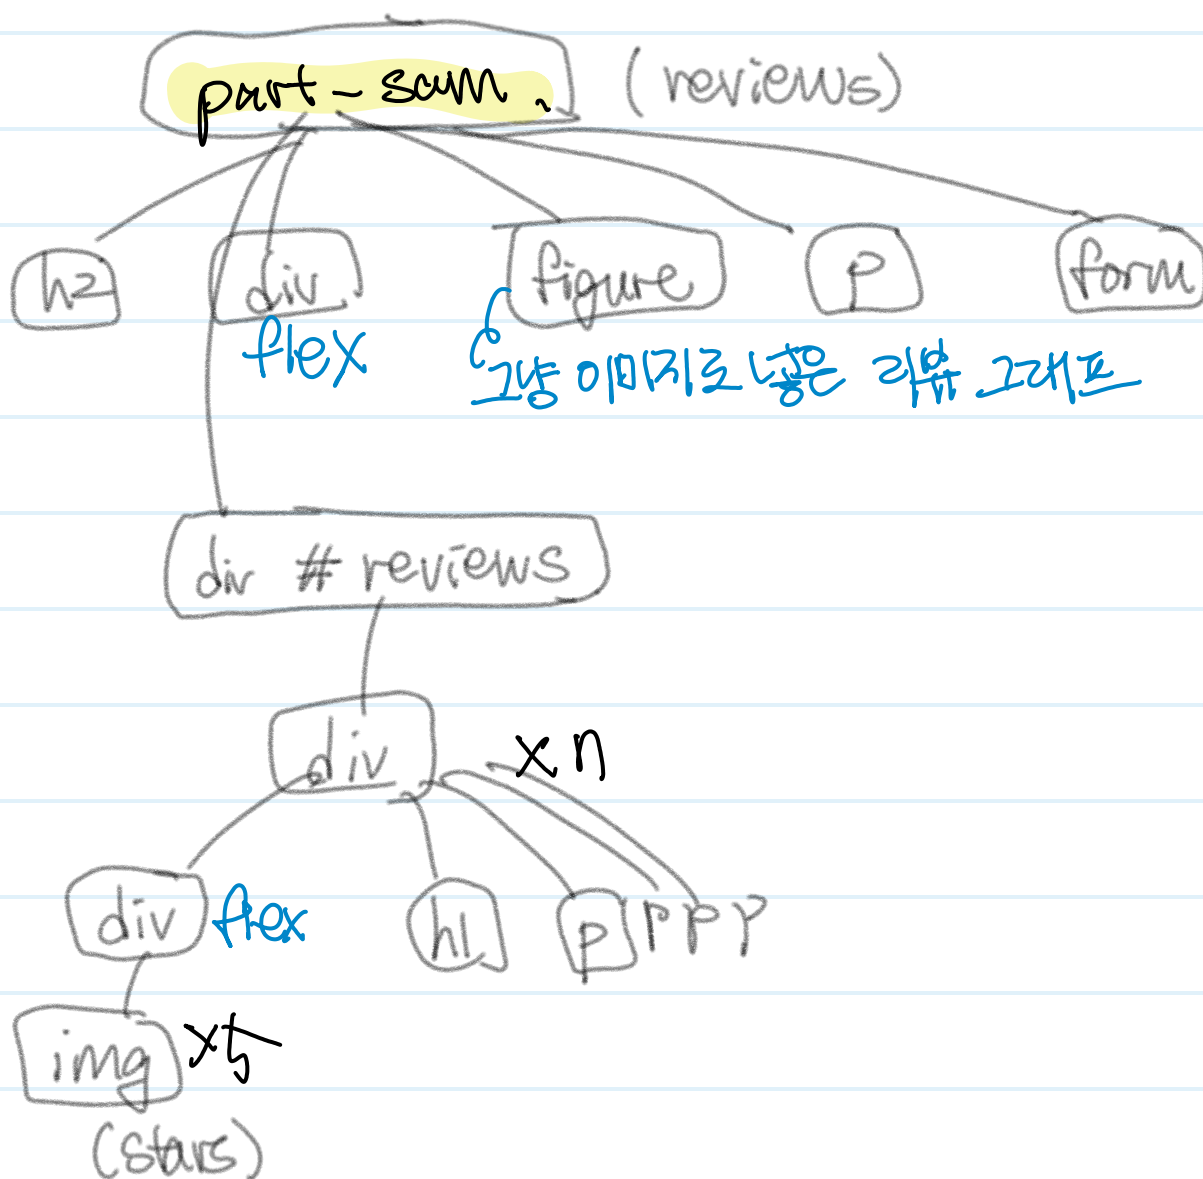 part-sam. (reviews)
h2 div figure p form
flex
그냥 이미지로 넣은 리뷰 그래프
div #reviews
div xn
div flex h1 p P P P
img x5
(stars)